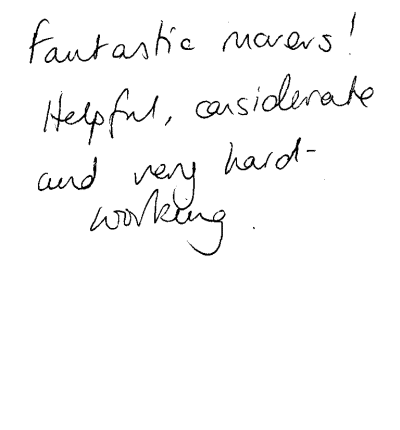 Fantastic movers!
Helpful, considerate
and very hard-
working.